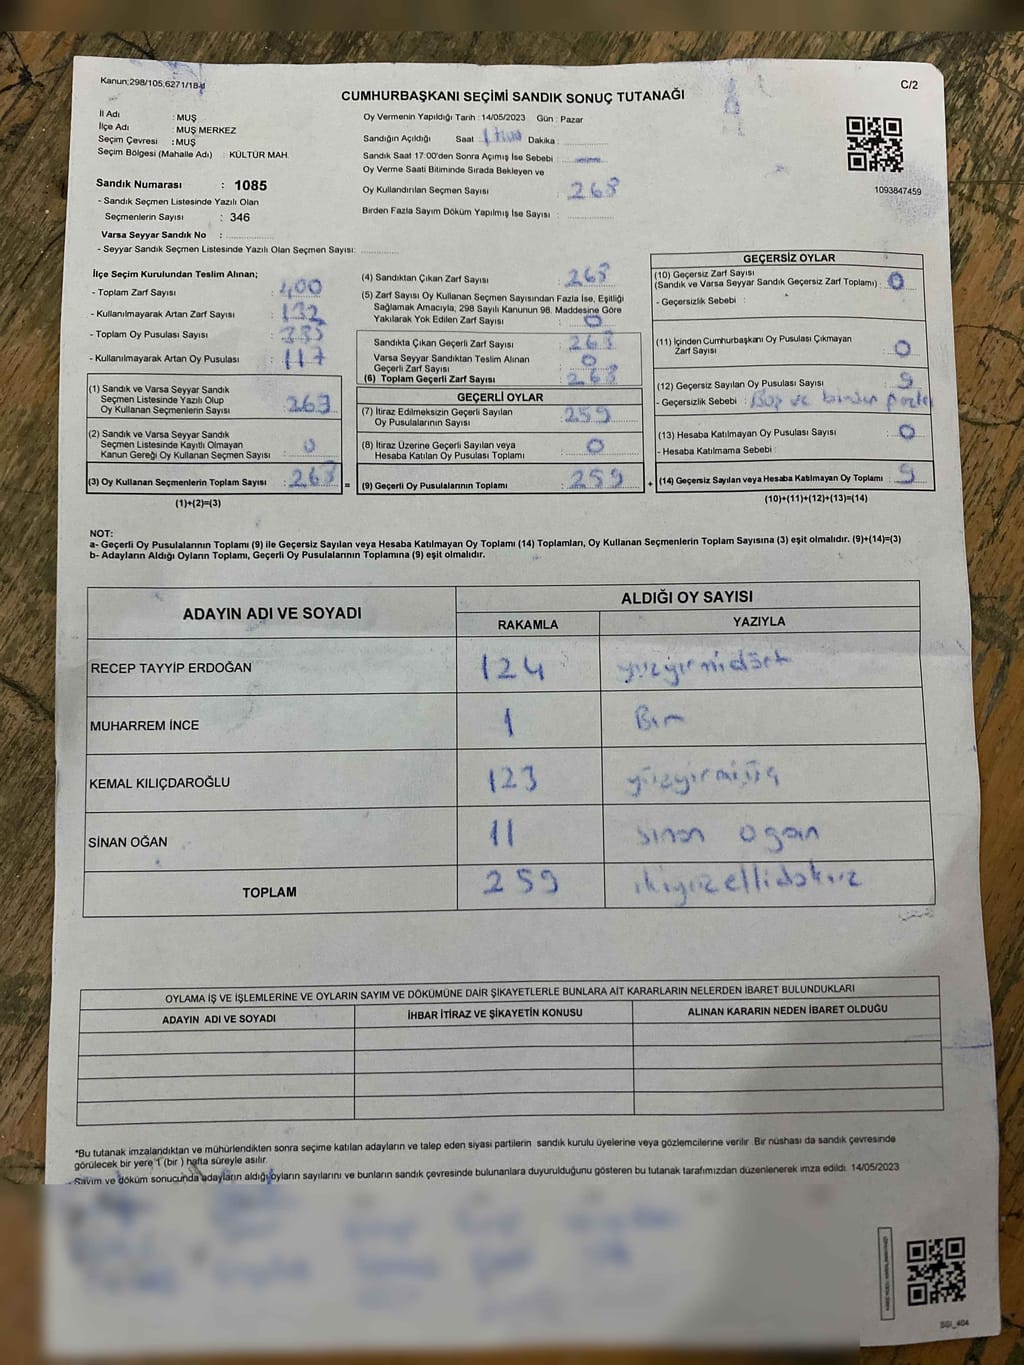 Kanun:298/105,6271/18-d
C/2
CUMHURBAŞKANI SEÇİMİ SANDIK SONUÇ TUTANAĞI
İl Adı : MUŞ
İlçe Adı : MUŞ MERKEZ
Seçim Çevresi : MUŞ
Seçim Bölgesi (Mahalle Adı) : KÜLTÜR MAH.
Sandık Numarası : 1085
- Sandık Seçmen Listesinde Yazılı Olan
Seçmenlerin Sayısı : 346
Varsa Seyyar Sandık No :
- Seyyar Sandık Seçmen Listesinde Yazılı Olan Seçmen Sayısı:
Oy Vermenin Yapıldığı Tarih : 14/05/2023 Gün : Pazar
Sandığın Açıldığı Saat : Dakika :
Sandık Saat 17:00'den Sonra Açılmış İse Sebebi :
Oy Verme Saati Bitiminde Sırada Bekleyen ve
Oy Kullandırılan Seçmen Sayısı : 268
Birden Fazla Sayım Döküm Yapılmış İse Sayısı :
1093847459
İlçe Seçim Kurulundan Teslim Alınan;
- Toplam Zarf Sayısı : 400
- Kullanılmayarak Artan Zarf Sayısı : 132
- Toplam Oy Pusulası Sayısı : 385
- Kullanılmayarak Artan Oy Pusulası : 117
(1) Sandık ve Varsa Seyyar Sandık
Seçmen Listesinde Yazılı Olup
Oy Kullanan Seçmenlerin Sayısı : 268
(2) Sandık ve Varsa Seyyar Sandık
Seçmen Listesinde Kayıtlı Olmayan
Kanun Gereği Oy Kullanan Seçmen Sayısı : 0
(3) Oy Kullanan Seçmenlerin Toplam Sayısı : 268 =
(1)+(2)=(3)
(4) Sandıktan Çıkan Zarf Sayısı : 268
(5) Zarf Sayısı Oy Kullanan Seçmen Sayısından Fazla İse, Eşitliği
Sağlamak Amacıyla, 298 Sayılı Kanunun 98. Maddesine Göre
Yakılarak Yok Edilen Zarf Sayısı : 0
Sandıkta Çıkan Geçerli Zarf Sayısı : 268
Varsa Seyyar Sandıktan Teslim Alınan
Geçerli Zarf Sayısı : 0
(6) Toplam Geçerli Zarf Sayısı : 268
GEÇERLİ OYLAR
(7) İtiraz Edilmeksizin Geçerli Sayılan
Oy Pusulalarının Sayısı : 259
(8) İtiraz Üzerine Geçerli Sayılan veya
Hesaba Katılan Oy Pusulası Toplamı : 0
(9) Geçerli Oy Pusulalarının Toplamı : 259 +
GEÇERSİZ OYLAR
(10) Geçersiz Zarf Sayısı
(Sandık ve Varsa Seyyar Sandık Geçersiz Zarf Toplamı) : 0
- Geçersizlik Sebebi :
(11) İçinden Cumhurbaşkanı Oy Pusulası Çıkmayan
Zarf Sayısı : 0
(12) Geçersiz Sayılan Oy Pusulası Sayısı : 9
- Geçersizlik Sebebi : Boş ve birden
(13) Hesaba Katılmayan Oy Pusulası Sayısı : 0
- Hesaba Katılmama Sebebi :
(14) Geçersiz Sayılan veya Hesaba Katılmayan Oy Toplamı : 9
(10)+(11)+(12)+(13)=(14)
NOT:
a- Geçerli Oy Pusulalarının Toplamı (9) ile Geçersiz Sayılan veya Hesaba Katılmayan Oy Toplamı (14) Toplamları, Oy Kullanan Seçmenlerin Toplam Sayısına (3) eşit olmalıdır. (9)+(14)=(3)
b- Adayların Aldığı Oyların Toplamı, Geçerli Oy Pusulalarının Toplamına (9) eşit olmalıdır.
ADAYIN ADI VE SOYADI
ALDIĞI OY SAYISI
RAKAMLA YAZIYLA
RECEP TAYYİP ERDOĞAN 124 yüzyirmidört
MUHARREM İNCE 1 Bir
KEMAL KILIÇDAROĞLU 123 yüzyirmiüç
SİNAN OĞAN 11 sinan ogan
TOPLAM 259 ikiyüzellidokuz
OYLAMA İŞ VE İŞLEMLERİNE VE OYLARIN SAYIM VE DÖKÜMÜNE DAİR ŞİKAYETLERLE BUNLARA AİT KARARLARIN NELERDEN İBARET BULUNDUKLARI
ADAYIN ADI VE SOYADI İHBAR İTİRAZ VE ŞİKAYETİN KONUSU ALINAN KARARIN NEDEN İBARET OLDUĞU
*Bu tutanak imzalandıktan ve mühürlendikten sonra seçime katılan adayların ve talep eden siyasi partilerin sandık kurulu üyelerine veya gözlemcilerine verilir. Bir nüshası da sandık çevresinde
görülecek bir yere 1 (bir ) hafta süreyle asılır.
- Sayım ve döküm sonucunda adayların aldığı oyların sayılarını ve bunların sandık çevresinde bulunanlara duyurulduğunu gösteren bu tutanak tarafımızdan düzenlenerek imza edildi. 14/05/2023
SGI_404